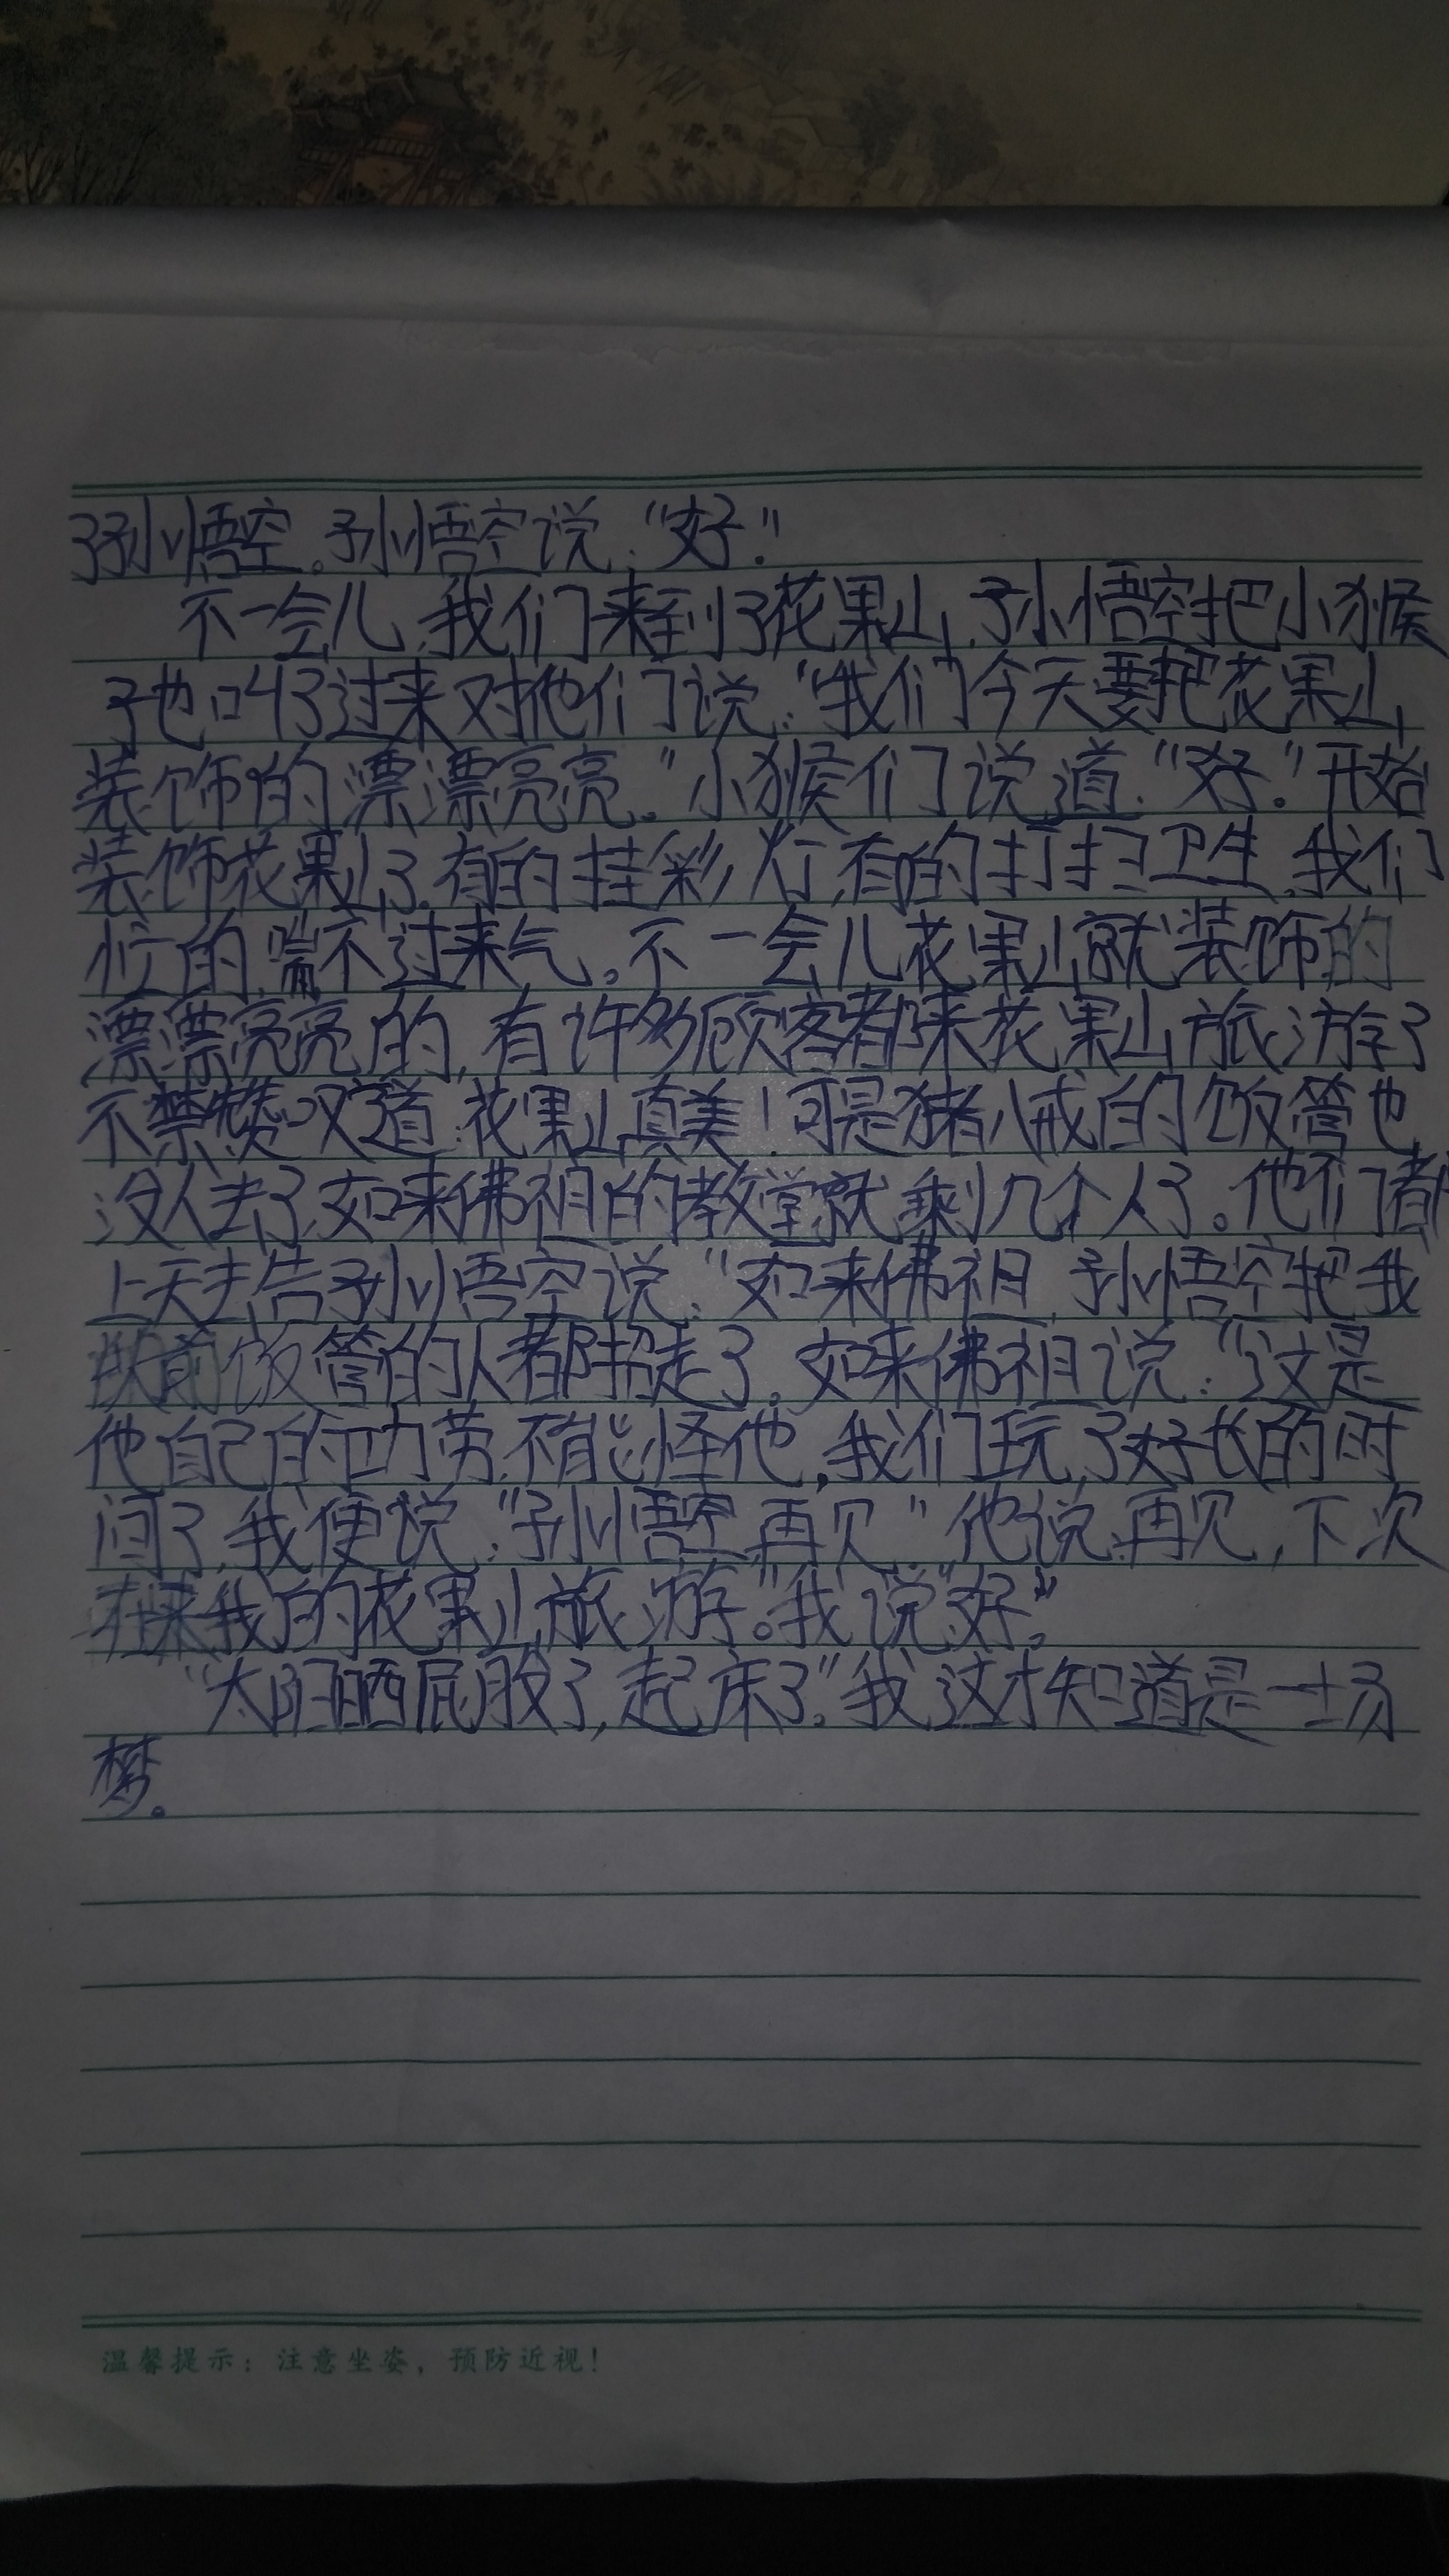 了孙悟空。孙悟空说:“好.”
不一会儿,我们来到了花果山,孙悟空把小猴
子也叫了过来对他们说:“我们今天要把花果山
装饰的漂漂亮亮。”小猴们说道:“好。”开始
装饰花果山了.有的挂彩灯,有的打扫卫生,我们
忙的喘不过来气。不一会儿花果山就装饰的
漂漂亮亮的,有许多顾客都来花果山旅游了
不禁赞叹道:花果山真美!可是猪八戒的饭管也
没人去了,如来佛祖的教堂就剩几个人了。他们都
上天去告孙悟空说:“如来佛祖,孙悟空把我
以前饭管的人都招走了。如来佛祖说:“这是
他自己的功劳,不能怪他,我们玩了好长的时
间了,我便说:“孙悟空,再见.”他说,再见,下次
来我的花果山旅游。”我说“好。”
“太阳晒屁股了,起床了。”我这才知道是一场
梦。
温馨提示:注意坐姿,预防近视!